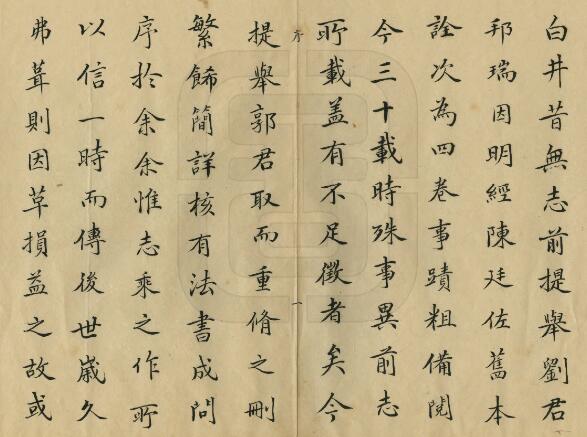 白井昔無志前提舉劉君
邦瑞因明經陳廷佐舊本
詮次為四卷事蹟粗備閱
今三十載時殊事異前志
所載盖有不足徵者矣今
序
一
提舉郭君取而重脩之刪
繁餙簡詳核有法書成問
序於余余惟志乘之作所
以信一時而傳後世嵗久
弗葺則因草損益之故或